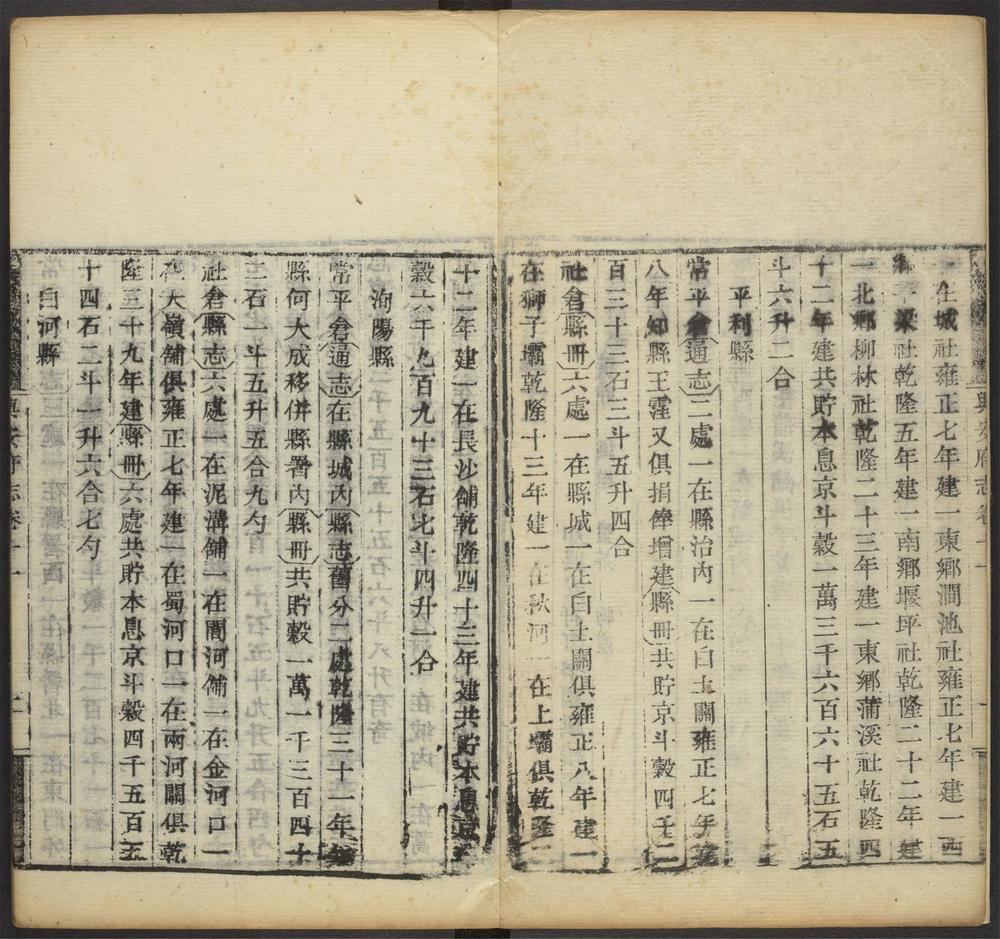 在城社雍正七年建一東鄉澗池社雍正七年建一西
鄉 梁社乾隆五年建一南鄉堰坪社乾隆二十二年建
一北鄉柳林社乾隆二十三年建一東鄉蒲溪社乾隆四
十二年建共貯本息京斗穀一萬三千六百六十五石五
斗六升二合
平利縣
常平倉通志二處一在縣治內一在白土關雍正七年
八年知縣王霔又俱捐俸增建縣冊共貯京斗穀四千二
百三十三石三斗五升四合
社倉縣冊六處一在縣城一在白土關俱雍正八年建一
在獅子壩乾隆十三年建一在秋河一在上壩俱乾隆二
十二年建一在長沙舖乾隆四十三年建共貯本息京斗
穀六千九百九十三石七斗四升一合
洵陽縣
常平倉通志在縣城內縣志舊分二處乾隆三十一年知
縣何大成移併縣署內縣冊共貯穀一萬一千三百四十
三石一斗五升五合九勺
社倉縣志六處一在泥溝舖一在閭河舖一在金河口一
在大嶺舖俱雍正七年建一在蜀河口一在兩河關俱乾
隆三十九年建縣冊六處共貯本息京斗穀四千五百五
十四石二斗一升六合七勺
白河縣
興安府志卷十一